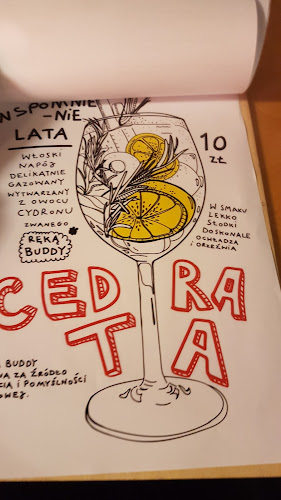 WSPOMNIE
-NIE
LATA
WŁOSKI
NAPÓJ
DELIKATNIE
GAZOWANY
WYTWARZANY
Z OWOCU
CYDRONU
ZWANEGO
RĘKĄ
BUDDY
10
ZŁ
W SMAKU
LEKKO
SŁODKI
DOSKONALE
OCHŁADZA
I ORZEŹWIA
CEDRA
TA
BUDDY
ZA ŹRÓDŁO
I POMYŚLNOŚCI